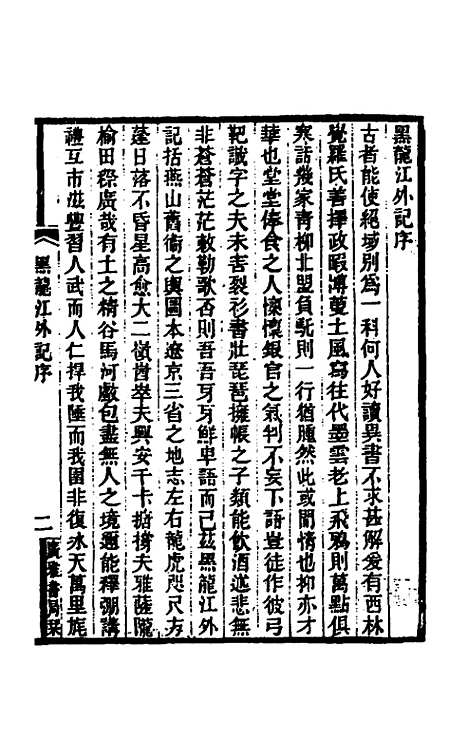 黑龍江外記序
古者能使絕域別為一科何人好讀異書不求甚解爰有西林
覺羅氏善擇政暇溥蔓土風寫往代墨雲老上飛鴉則萬點俱
寒話幾家靑柳北盟負羝則一行猶腫然此或閒情也抑亦才
華也堂堂俸食之人懷懷銀官之氣判不妄下語豈徒作彼弓
靶識字之夫未害裂衫書壯琵琶擁帳之子類能飲酒道悲無
非蒼蒼茫茫敕勒歌否則吾吾牙牙鮮卑語而已茲黑龍江外
記括燕山舊衞之輿圖本遼京三省之地志左右龍虎咫尺方
蓬日落不昏星高愈大二嶺崷崒夫興安千卡搘撐夫雅薩隴
榆田穄廣哉有土之楕谷馬河獻包盡無人之境週能釋弸講
禮互市滋豐習人武而人仁捍我陲而我圉非復冰天萬里旄
黑龍江外記序
二
廣雅書局栞